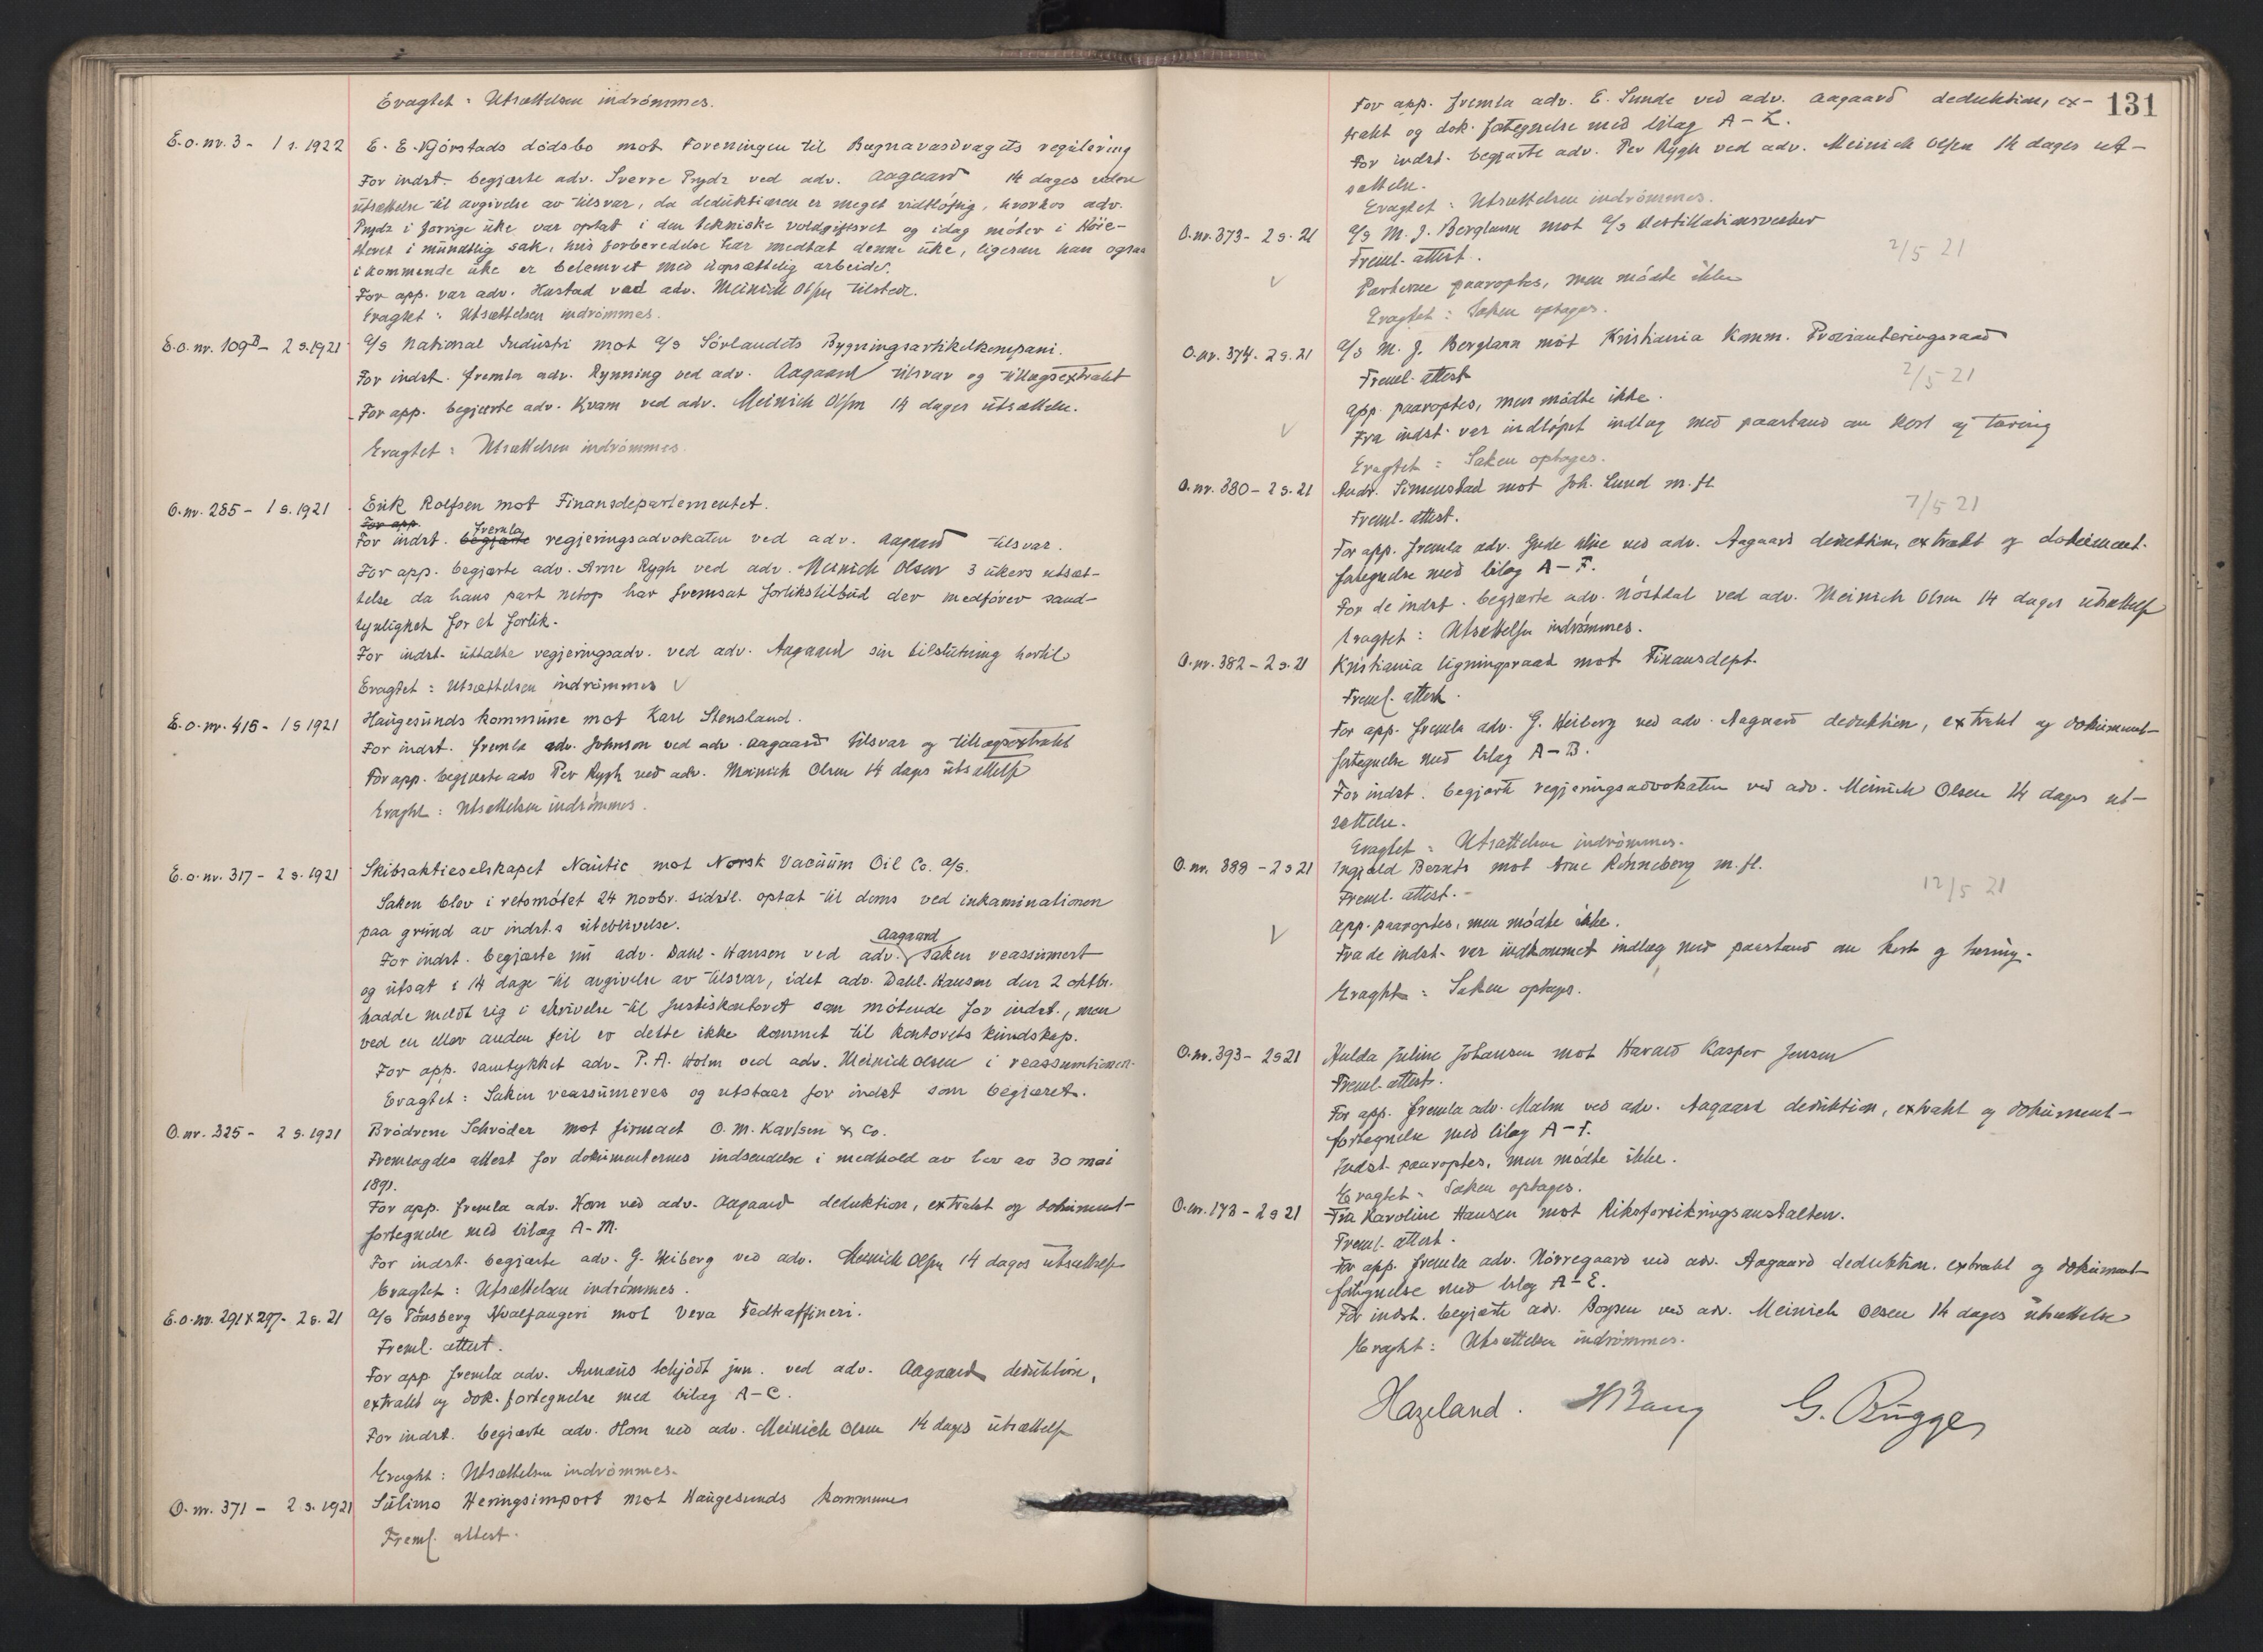 Eragtet: Utsættelsen indrømmes.
E.o. nr. 3 - 1 s. 1922
E. E. Bjørstads dødsbo mot Foreningen til Bægnavasdragets regulering
For indst. begjærte adv. Sverre Prydz ved adv. Aagaard 14 dages videre
utsættelse til avgivelse av tilsvar, da deduktionen er meget vidtløftig, hvorhos adv.
Prydz i forrige uke var optat i den tekniske voldgiftsret og idag møter i Høie-
steret i mundtlig sak, hvis forberedelse har medtat denne uke, ligesom han ogsaa
i kommende uke er belemret med uopsættelig arbeide.
For app. var adv. Hustad ved adv. Meinich Olsen tilstede.
Eragtet: Utsættelsen indrømmes.
E.o. nr. 109 B - 2 s. 1921
A/s National Industri mot A/s Sørlandets Bygningsartikelkompani.
For indst. fremla adv. Rynning ved adv. Aagaard tilsvar og tillægsextrakt
For app. begjærte adv. Kvam ved adv. Meinich Olsen 14 dages utsættelse.
Eragtet: Utsættelsen indrømmes.
O. nr. 285 - 1 s. 1921
Erik Rolfsen mot Finansdepartementet.
For app.
For indst. begjærte fremla regjeringsadvokaten ved adv. Aagaard tilsvar.
For app. begjærte adv. Arne Rygh ved adv. Meinich Olsen 3 ukers utsæt-
telse da hans part netop har fremsat forlikstilbud der medfører sand-
synlighet for et forlik.
For indst. uttalte regjeringsadv. ved adv. Aagaard sin tilslutning hertil
Eragtet: Utsættelsen indrømmes V
E.o. nr. 415 - 1 s 1921
Haugesunds kommune mot Karl Stensland.
For indst. fremla adv. Johnson ved adv. Aagaard tilsvar og tillægsextrakt
For app. begjærte adv Per Rygh ved adv. Meinich Olsen 14 dages utsættelse
Eragtet: Utsættelsen indrømmes.
E.o. nr. 317 - 2 s. 1921
Skibsaktieselskapet Nautic mot Norsk Vacuum Oil Co. A/s.
Saken blev i retsmøtet 24 novbr. sidstl. optat til doms ved inkaminationen
paa grund av indst.s uteblivelse.
For indst. begjærte nu adv. Dahl-Hansen ved adv. Aagaard saken reassumert
og utsat i 14 dage til avgivelse av tilsvar, idet adv. Dahl-Hansen den 2 oktbr.
hadde meldt sig i skrivelse til Justiskontoret som møtende for indst., men
ved en eller anden feil er dette ikke kommet til kontorets kundskap.
For app. samtykket adv. P. A. Holm ved adv. Meinich Olsen i reassumtionen.
Eragtet: Saken reassumeres og utstaar for indst som begjæret.
O. nr. 325 - 2 s. 1921
Brødrene Schrøder mot firmaet O. M. Karlsen & Co.
Fremlagdes attest for dokumenternes indsendelse i medhold av lov av 30 mai
1891.
For app. fremla adv. Horn ved adv. Aagaard deduktion, extrakt og dokument-
fortegnelse med bilag A-M.
For indst. begjærte adv. G. Heiberg ved adv. Meinich Olsen 14 dages utsættelse
Eragtet: Utsættelsen indrømmes.
E.o. nr. 291 x 297 - 2 s. 21
A/s Tønsberg Hvalfangeri mot Vera Fedtraffineri.
Freml. attest.
For app. fremla adv. Annæus Schjødt jun. ved adv. Aagaard deduktion,
extrakt og dok. fortegnelse med bilag A-C.
For indst. begjærte adv. Horn ved adv. Meinich Olsen 14 dages utsættelse
Eragtet: Utsættelsen indrømmes.
O. nr. 371 - 2 s. 1921
Sülimo Heringsimport mot Haugesunds kommune
Freml. attest.
131
For app. fremla adv. E. Sunde ved adv. Aagaard deduktion, ex-
trakt og dok. fortegnelse med bilag A-L.
For indst. begjærte adv. Per Rygh ved adv. Meinich Olsen 14 dages ut-
sættelse.
Eragtet: Utsættelsen indrømmes.
O. nr. 373 - 2 s. 21
A/s M. J. Berglann mot A/s Destillationsverker
2/5 21
Freml. attest.
V
Parterne paaroptes, men mødte ikke
Eragtet: Saken optages.
O. nr. 374. 2 s. 21
A/s M. J. Berglann mot Kristiania Komm. Provianteringsraad
2/5 21
Freml. attest
App. paaroptes, men mødte ikke.
V
Fra indst. var indløpet indlæg med paastand om kost og tæring
Eragtet: Saken optages.
O. nr. 380 - 2 s. 21
Andr. Simenstad mot Joh. Lund m. fl.
7/5 21
Freml. attest.
For app. fremla adv. Gude ved adv. Aagaard deduktion, extrakt og dokument-
fortegnelse med bilag A-F.
For de indst. begjærte adv. Nøstdal ved adv. Meinich Olsen 14 dages utsættelse
Eragtet: Utsættelsen indrømmes.
O. nr. 382 - 2 s. 21
Kristiania ligningsraad mot Finansdept.
Freml. attest.
For app. fremla adv. G. Heiberg ved adv. Aagaard deduktion, extrakt og dokument-
fortegnelse med bilag A-B.
For indst. begjærte regjeringsadvokaten ved adv. Meinich Olsen 14 dages ut-
sættelse.
Eragtet: Utsættelsen indrømmes.
O. nr. 388 - 2 s 21
Ingjald Bernts mot Arne Rønneberg m. fl.
12/5 21
Freml. attest.
V
App. paaroptes, men mødte ikke.
Fra de indst. var indkommet indlæg med paastand om kost og tæring.
Eragtet: Saken optages.
O. nr. 393 - 2 s 21
Hulda Juline Johansen mot Harald Kasper Jensen
Freml. attest.
For app. fremla adv. Malm ved adv. Aagaard deduktion, extrakt og dokument-
fortegnelse med bilag A-F.
Indst. paaroptes, men mødte ikke.
Eragtet: Saken optages.
O. nr. 178 - 2 s 21
Fru Karoline Hansen mot Riksforsikringsanstalten.
Freml. attest.
For app. fremla adv. Nørregaard ved adv. Aagaard deduktion. extrakt og dokument-
fortegnelse med bilag A-E.
For indst. begjærte adv. Boysen ved adv. Meinich Olsen 14 dages utsættelse
Eragtet: Utsættelsen indrømmes.
Hazeland. HBang G. Bugge